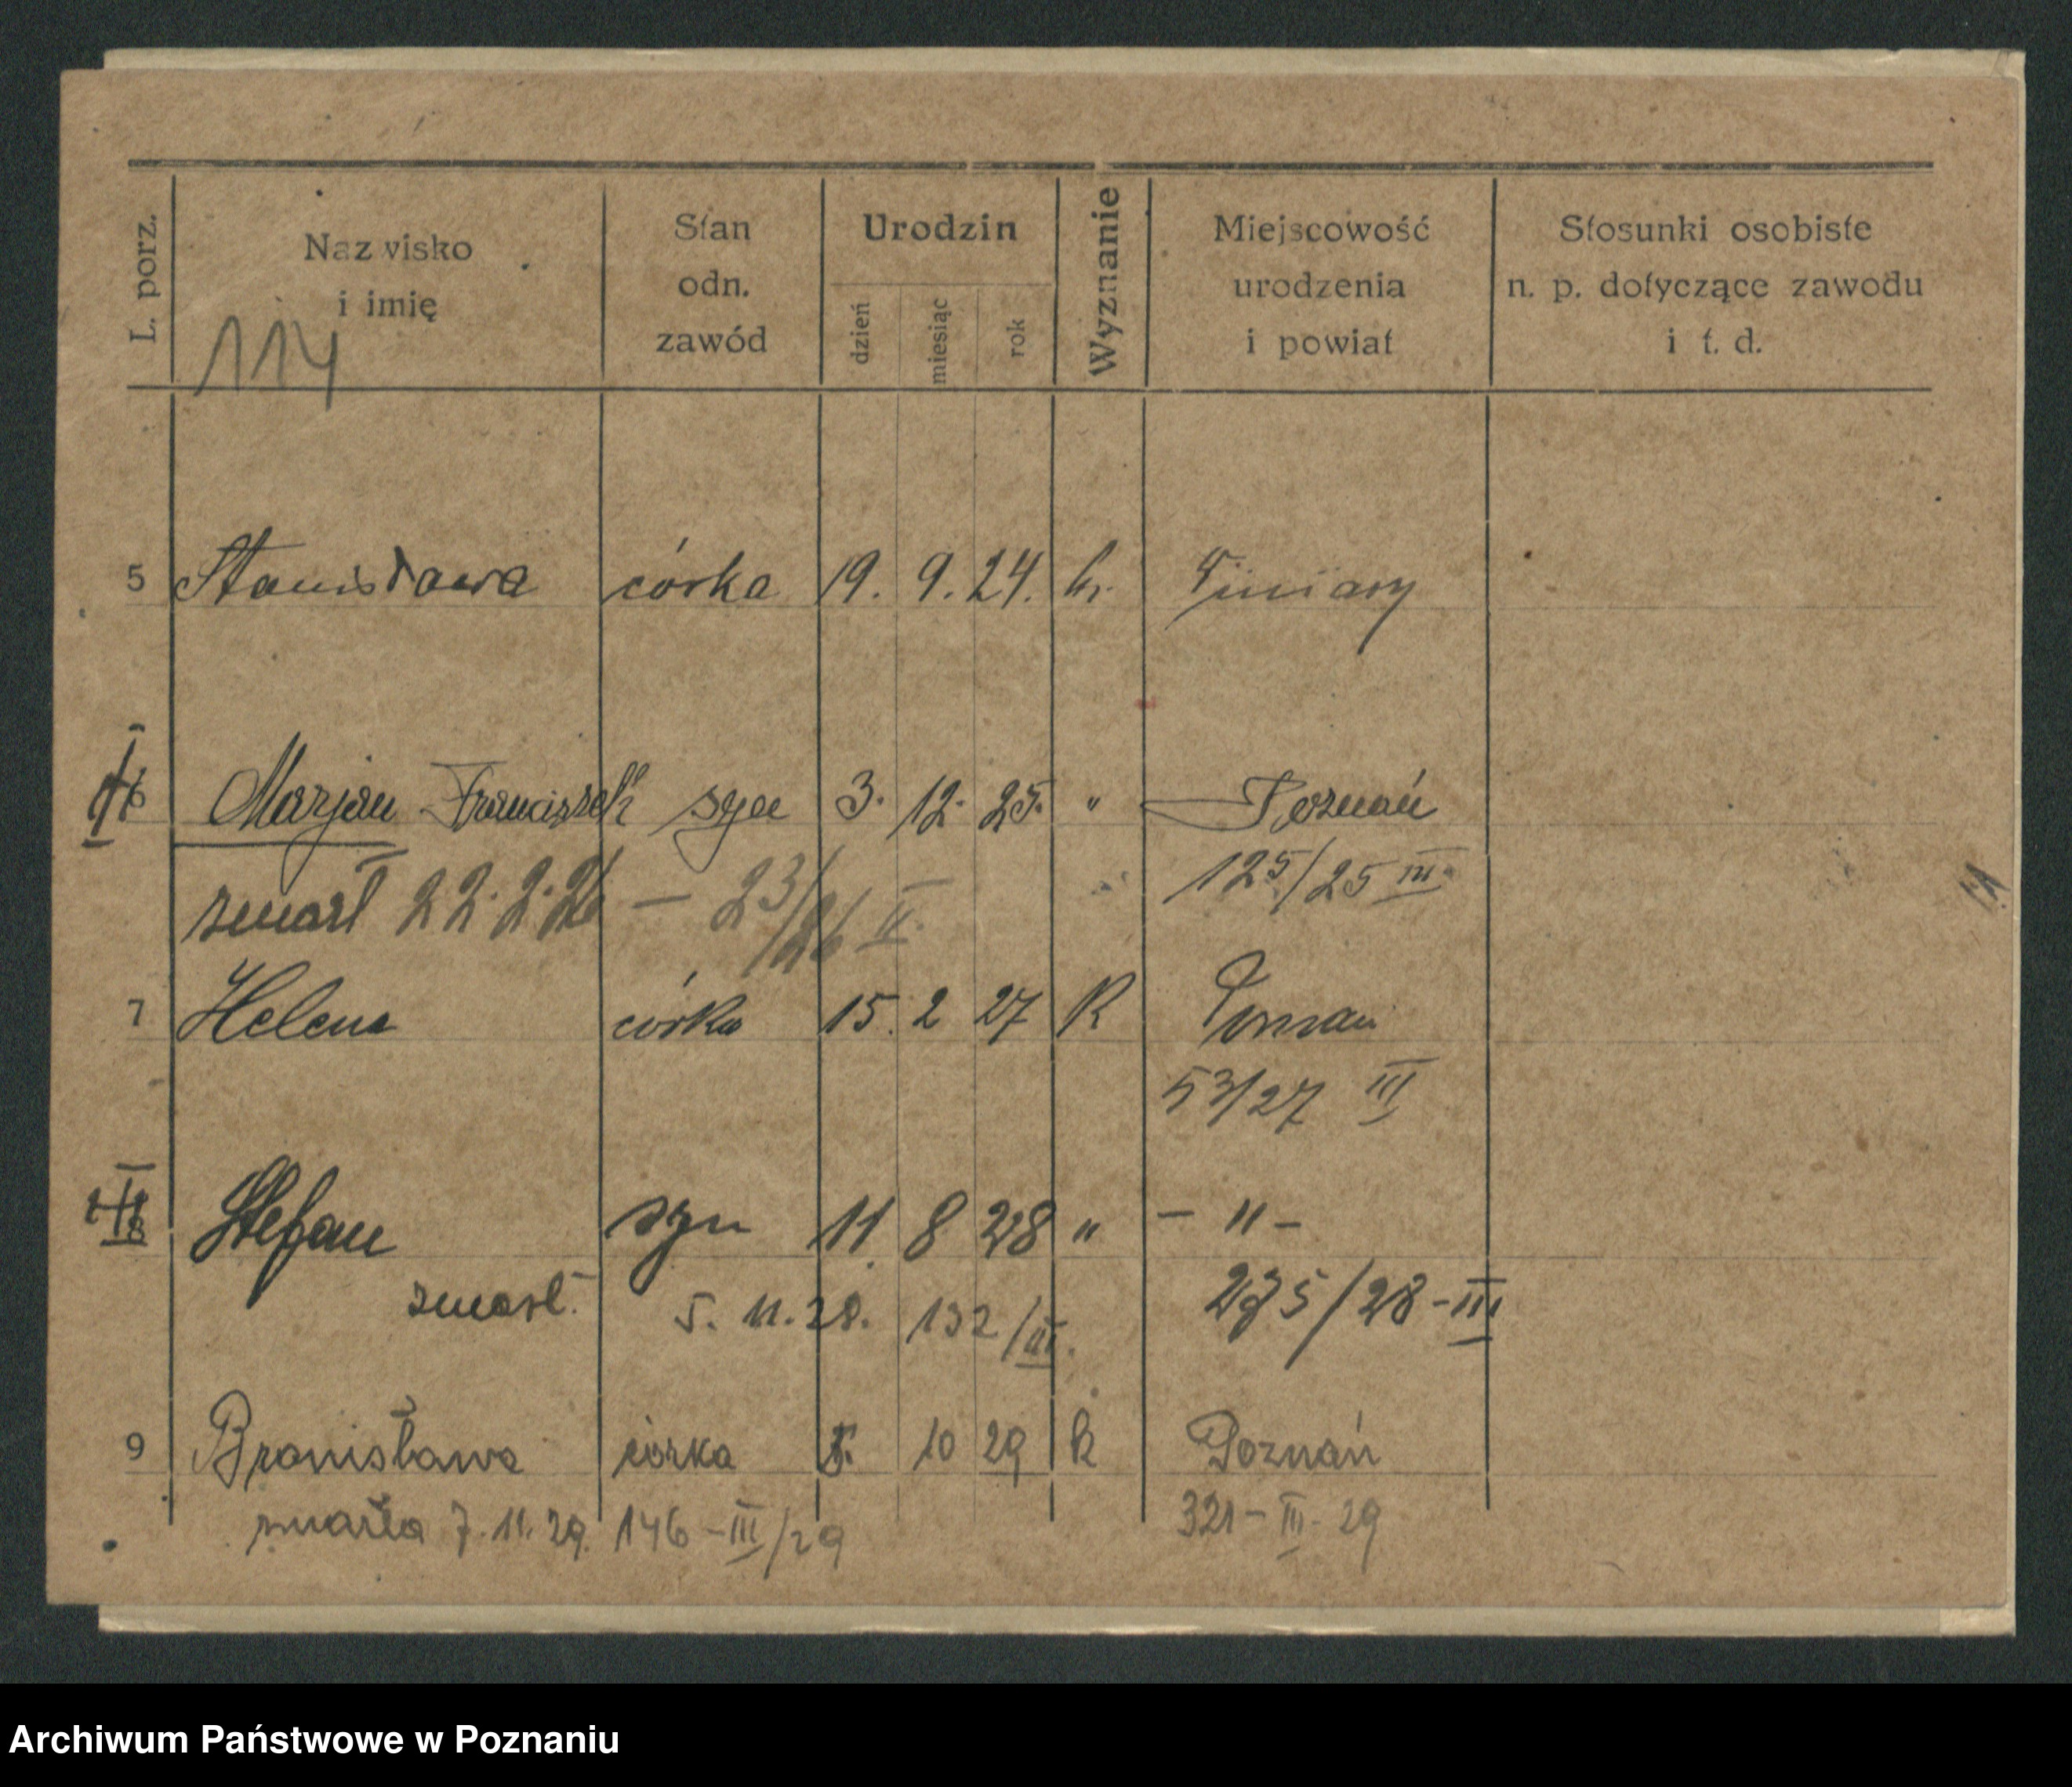 L. porz. Nazwisko i imię Stan odn. zawód Urodzin dzień miesiąc rok Wyznanie Miejscowość urodzenia i powiat Stosunki osobiste n. p. dotyczące zawodu i t. d.
114
5 Stanisława córka 19. 9. 24. k. Winiary
6 Marjan Franciszek syn 3. 12. 25. " Poznań
zmarł 22.2.26 — 23/26 II. 125/25 III.
7 Helena córka 15. 2 27 K Poznań
53/27 III
8 Stefan syn 11. 8 28 " — " —
zmarł. 5. 11. 28. 132/III. 275/28-III
9 Bronisława córka 10 29 k Poznań
zmarła 7.11.29. 146-III/29 321-III-29
Archiwum Państwowe w Poznaniu